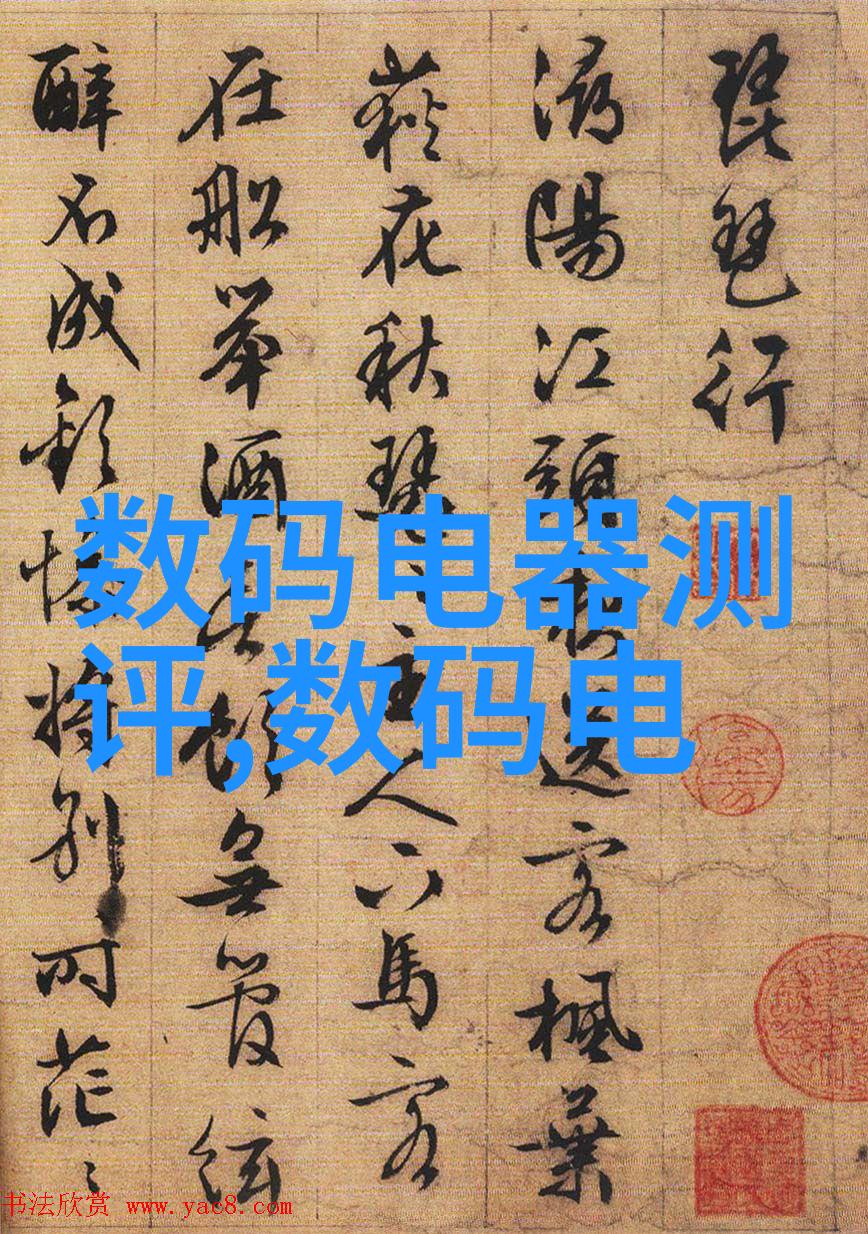 琵琶行
潯陽江頭夜送客楓葉
荻花秋瑟〻主人下馬客
在船舉酒欲飲無管絃
醉不成歡慘將別別時茫〻
数码电器测
评,数码电
书法欣赏 www.yac8.com